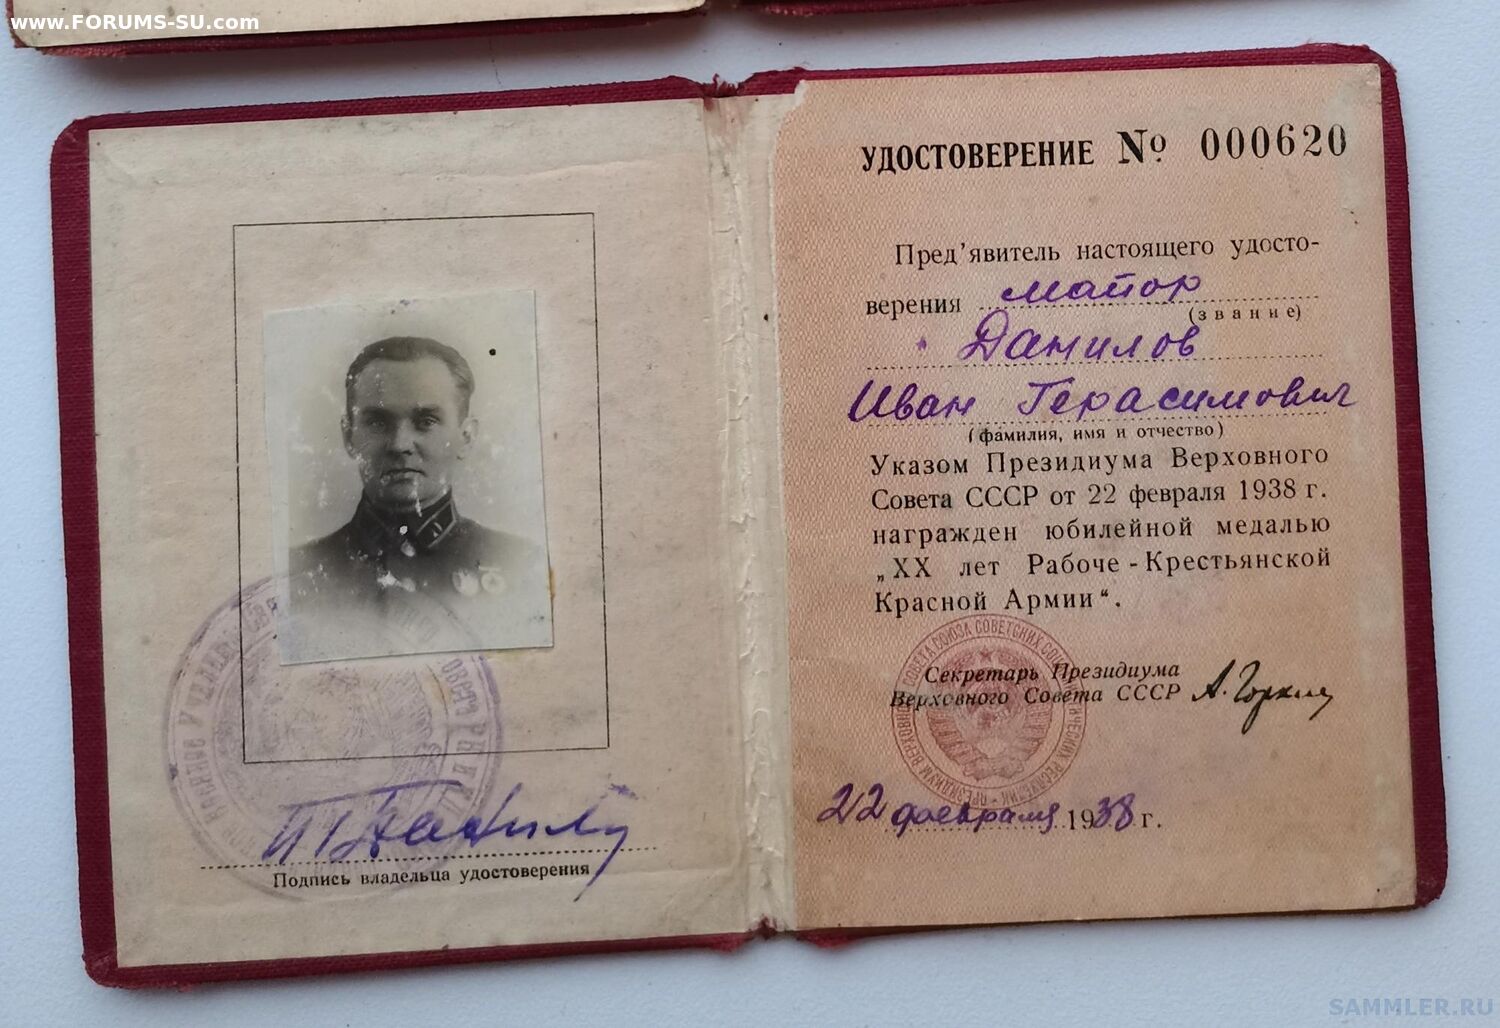 www.FORUMS-SU.com
Подпись владельца удостоверения
УДОСТОВЕРЕНИЕ № 000620
Пред'явитель настоящего удосто-
верения майор
(звание)
Данилов
Иван Герасимович
(фамилия, имя и отчество)
Указом Президиума Верховного
Совета СССР от 22 февраля 1938 г.
награжден юбилейной медалью
„ХХ лет Рабоче-Крестьянской
Красной Армии“.
Секретарь Президиума
Верховного Совета СССР А. Горкин
22 февраля 1938 г.
SAMMLER.RU